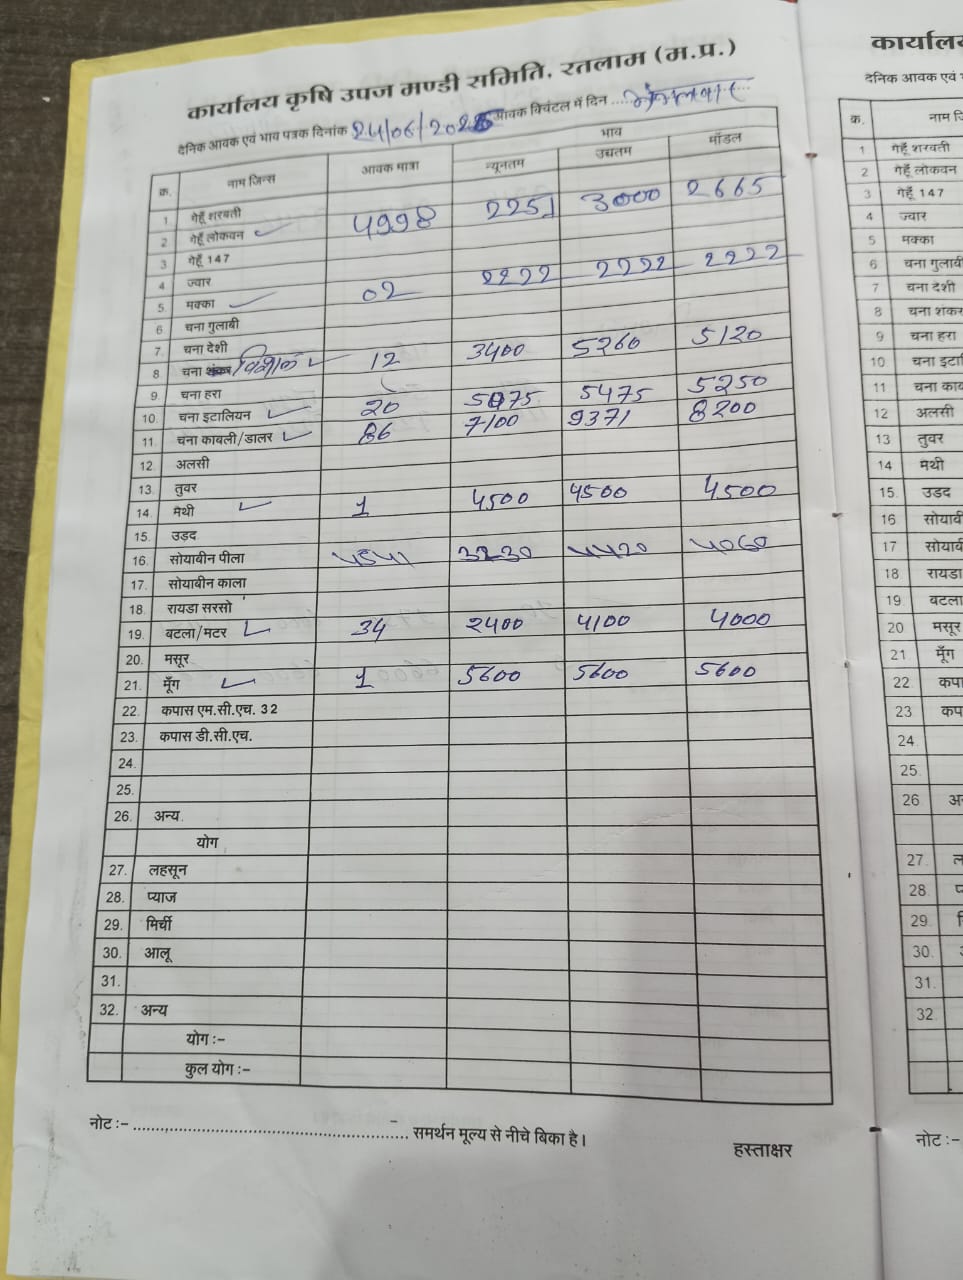 कार्यालय कृषि उपज मण्डी समिति, रतलाम (म.प्र.)
दैनिक आवक एवं भाव पत्रक दिनांक 24/06/2025 आवक क्विंटल में दिन मंगलवार
क. नाम जिन्स आवक मात्रा भाव
न्यूनतम उच्चतम मॉडल
1 गेहूँ शरबती
2 गेहूँ लोकवन ✓ 4998 2251 3000 2665
3 गेहूँ 147
4 ज्वार
5. मक्का ✓ 02 2222 2222 2222
6 चना गुलाबी
7. चना देशी
8 चना विशाल ✓ 12 3400 5260 5120
9. चना हरा
10. चना इटालियन ✓ 20 5475 5250
11. चना काबली/डालर ✓ 86 7100 9371 8200
12. अलसी
13. तुवर
14. मैथी ✓ 1 4500 4500 4500
15. उड़द
16. सोयाबीन पीला 3230 4420 4060
17. सोयाबीन काला
18. रायडा सरसो
19. बटला/मटर ✓ 34 2400 4100 4000
20. मसूर
21. मूँग ✓ 1 5600 5600 5600
22. कपास एम.सी.एच. 32
23. कपास डी.सी.एच.
24.
25.
26. अन्य.
योग
27. लहसून
28. प्याज
29. मिर्ची
30. आलू
31.
32. अन्य
योग :-
कुल योग :-
नोट :- समर्थन मूल्य से नीचे बिका है।
हस्ताक्षर
कार्याल
दैनिक आवक एवं
क. नाम जि
1 गेहूँ शरबती
2 गेहूँ लोकवन
3 गेहूँ 147
4 ज्वार
5 मक्का
6 चना गुलाबी
7 चना देशी
8 चना शंकर
9 चना हरा
10 चना इटा
11 चना काब
12 अलसी
13 तुवर
14 मैथी
15. उडद
16 सोयाबी
17 सोयाबी
18 रायडा
19 बटला
20 मसूर
21 मूँग
22 कपा
23 कप
24
25.
26 अ
27. ल
28 प
29
30.
31.
32
नोट :-